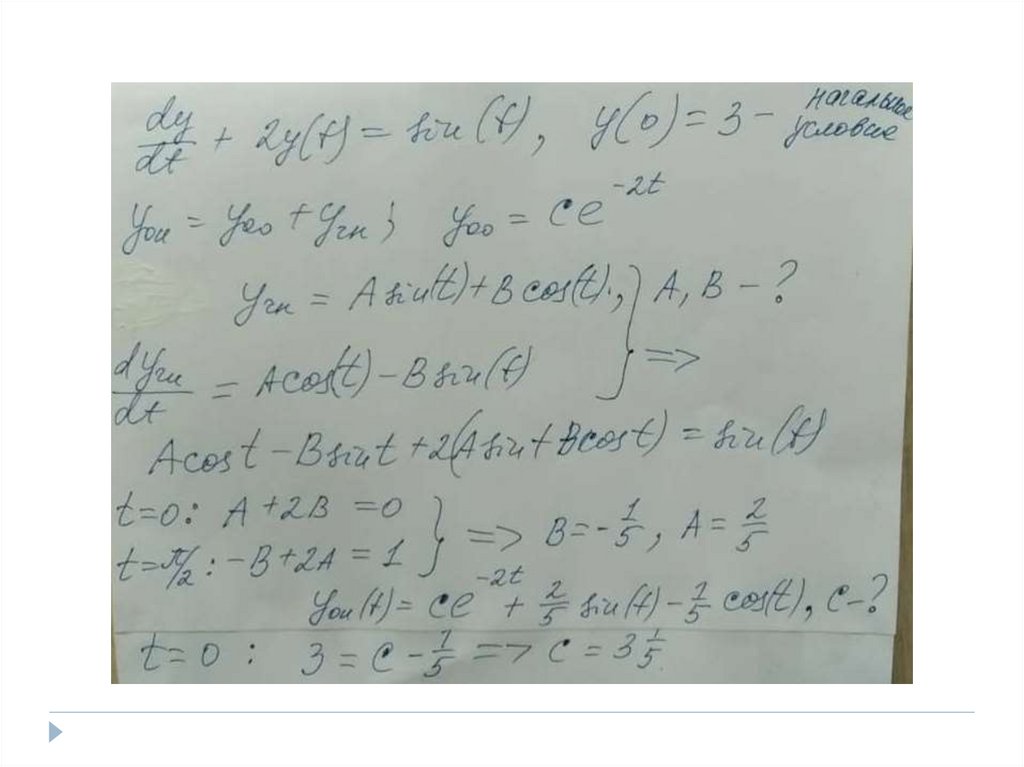 dy/dt + 2y(t) = sin(t), y(0) = 3 – начальное условие
yон = yоо + yчн; yоо = ce^{-2t}
yчн = A sin(t) + B cos(t)., } A, B – ?
dyчн/dt = A cos(t) – B sin(t) } =>
A cos t – B sin t + 2(A sin t + B cos t) = sin(t)
t=0: A + 2B = 0
t=π/2: –B + 2A = 1 } => B = –1/5, A = 2/5
yон(t) = ce^{-2t} + 2/5 sin(t) – 1/5 cos(t), c–?
t = 0 : 3 = c – 1/5 => c = 3 1/5.